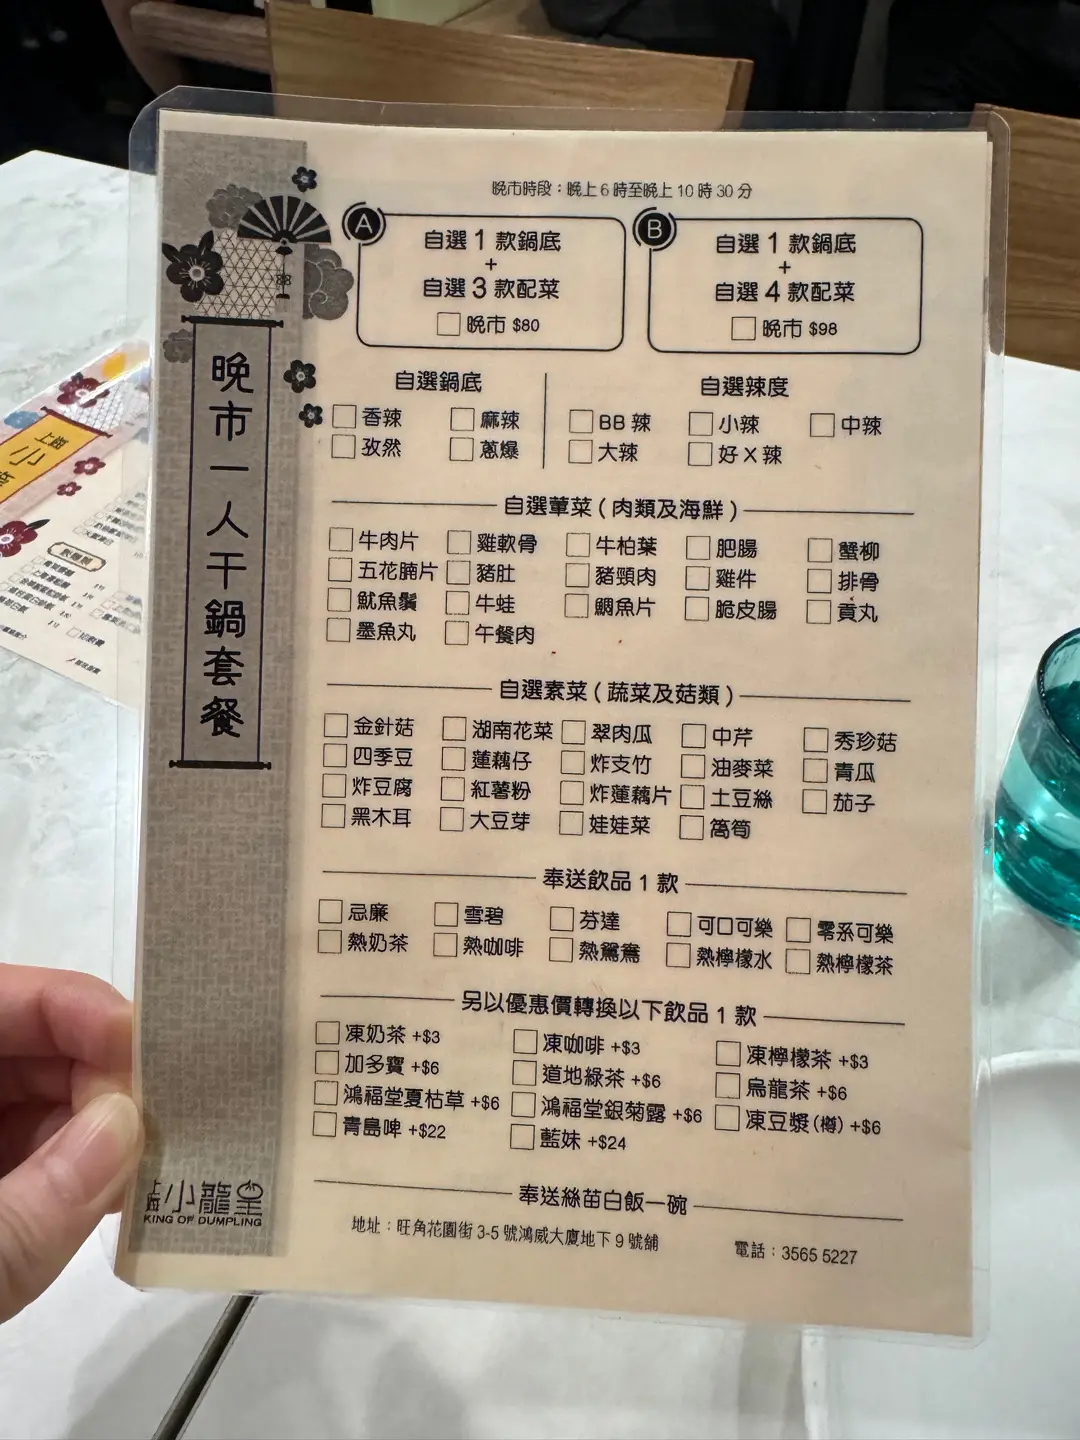 晚市一人干鍋套餐
晚市時段：晚上 6 時至晚上 10 時 30 分
A
自選 1 款鍋底
+
自選 3 款配菜
晚市 $80
B
自選 1 款鍋底
+
自選 4 款配菜
晚市 $98
自選鍋底
香辣 麻辣
孜然 蔥爆
自選辣度
BB 辣 小辣 中辣
大辣 好 X 辣
自選葷菜 ( 肉類及海鮮 )
牛肉片 雞軟骨 牛柏葉 肥腸 蟹柳
五花腩片 豬肚 豬頸肉 雞件 排骨
魷魚鬚 牛蛙 鯛魚片 脆皮腸 貢丸
墨魚丸 午餐肉
自選素菜 ( 蔬菜及菇類 )
金針菇 湖南花菜 翠肉瓜 中芹 秀珍菇
四季豆 蓮藕仔 炸支竹 油麥菜 青瓜
炸豆腐 紅薯粉 炸蓮藕片 土豆絲 茄子
黑木耳 大豆芽 娃娃菜 萵筍
奉送飲品 1 款
忌廉 雪碧 芬達 可口可樂 零系可樂
熱奶茶 熱咖啡 熱鴛鴦 熱檸檬水 熱檸檬茶
另以優惠價轉換以下飲品 1 款
凍奶茶 +$3 凍咖啡 +$3 凍檸檬茶 +$3
加多寶 +$6 道地綠茶 +$6 烏龍茶 +$6
鴻福堂夏枯草 +$6 鴻福堂銀菊露 +$6 凍豆漿 (樽) +$6
青島啤 +$22 藍妹 +$24
奉送絲苗白飯一碗
上海小龍皇
KING OF DUMPLING
地址：旺角花園街 3-5 號鴻威大廈地下 9 號舖
電話：3565 5227
上海
小